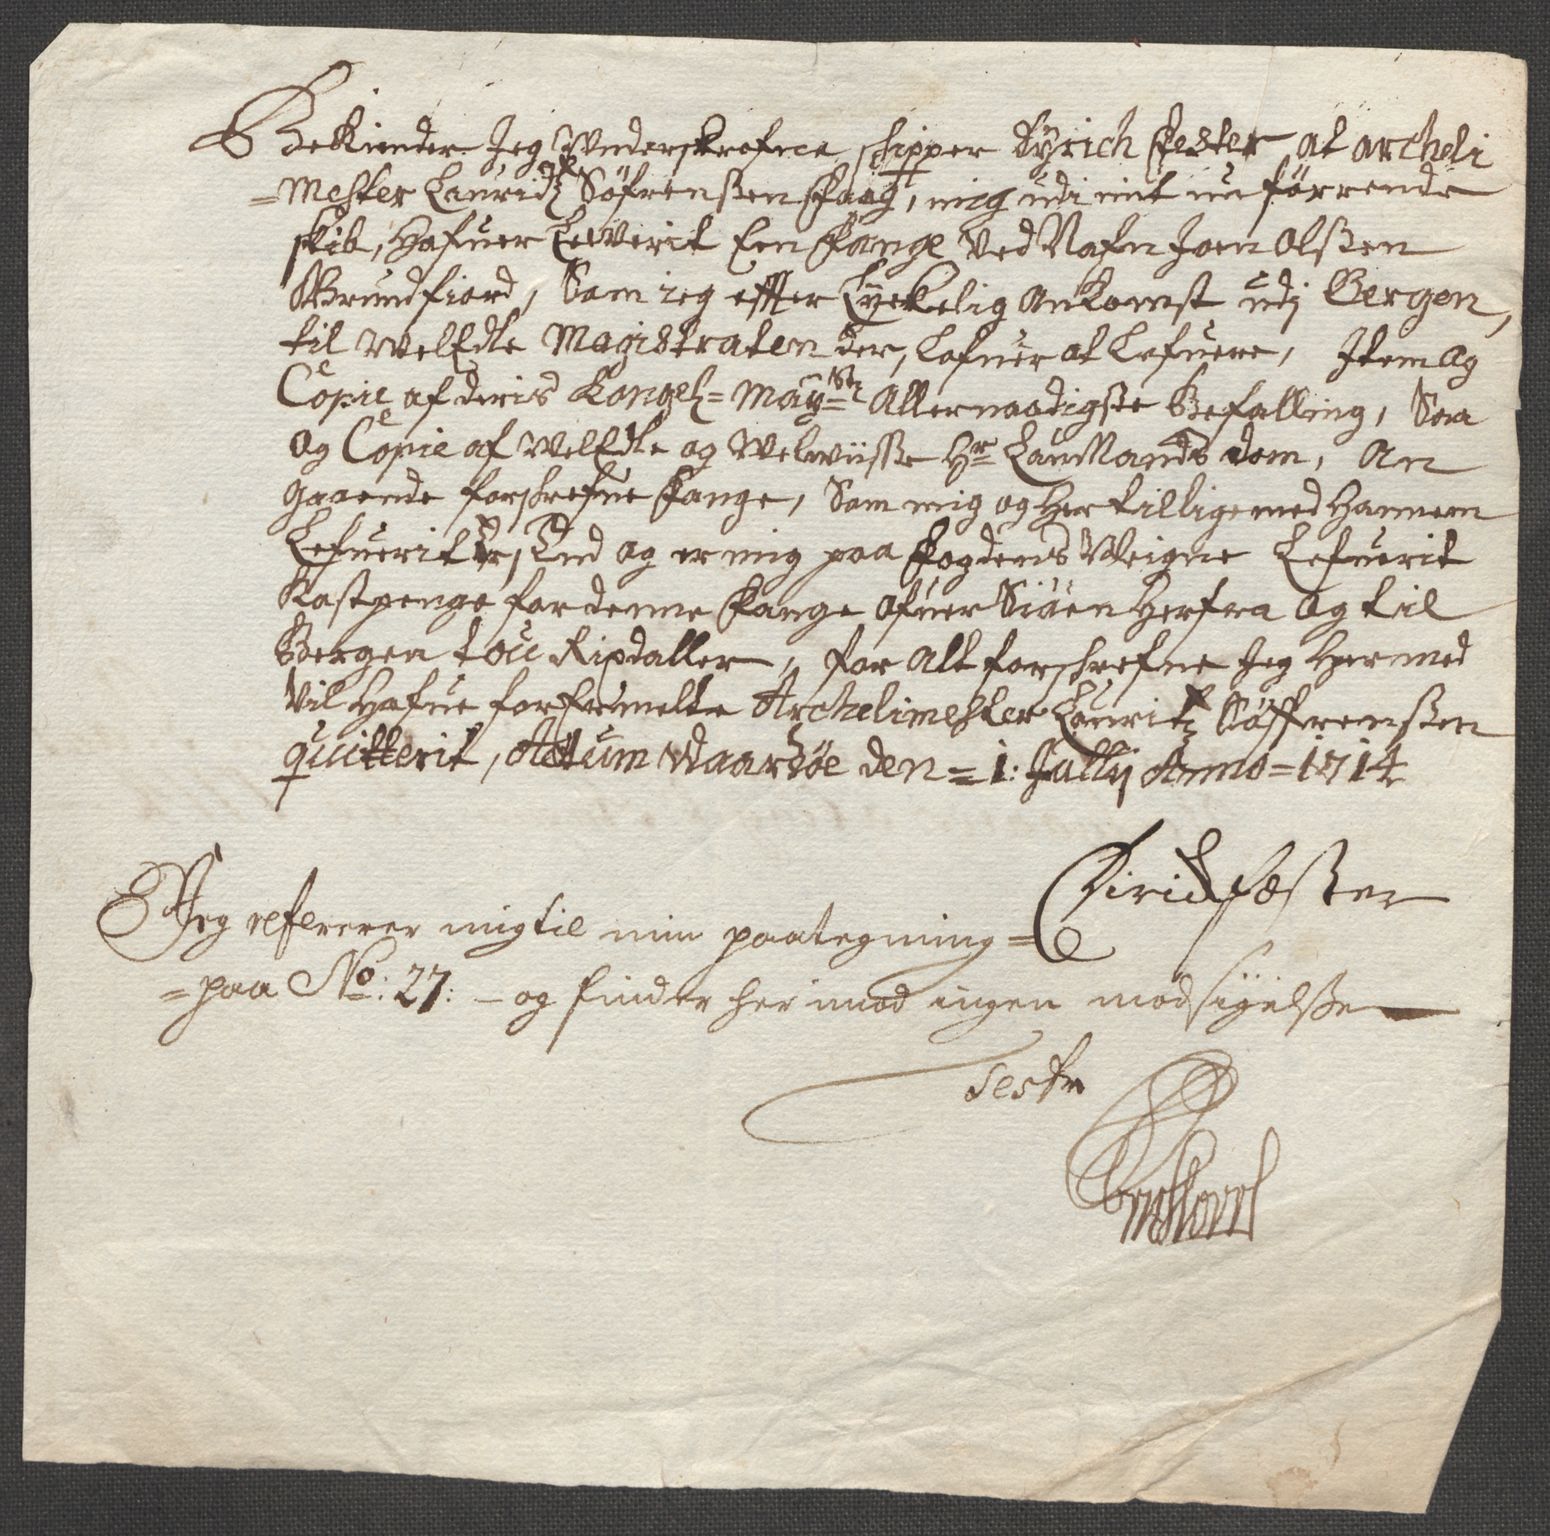 Bekiender Jeg Underskrefne skipper Dyrich Fester at archeli
=Mester Lauridtz Söfrenßen Faag, mig udi mit un förrende
skib, Hafuer Lewerit Een Fange Ved Nafn Joen Olßen
Grundfiord, Som ieg effter Lyckelig Ankomst udj Bergen,
til WelEdle Magistraten der, Lofuer at Lefuere, Item Og
Copie af deris Kongel= May=tts Allernaadigste Befalling, Saa
Og Copie af WelEdle og Welwiisse Hr LauMands dom, An
gaaende forskrefne Fange, Som mig og Her tillige med Hannem
Lefuerit er, End og er mig paa Fogdens Weigne Lefuerit
Kostpenge for denne Fange Ofuer Siöen Herfra Og til
Bergen toue Rixdaller, for Alt forskrefne Jeg Hermed
Vil Hafue forbemelte Archelimester Lauritz Söffrenßen
quitterit, Actum Waardöe den = 1: Jullij Anno = 1714
Dirich Fæster
Jeg refererer mig til min paategning =
= paa No: 27: - og finder her imod ingen modsigelße
Testr